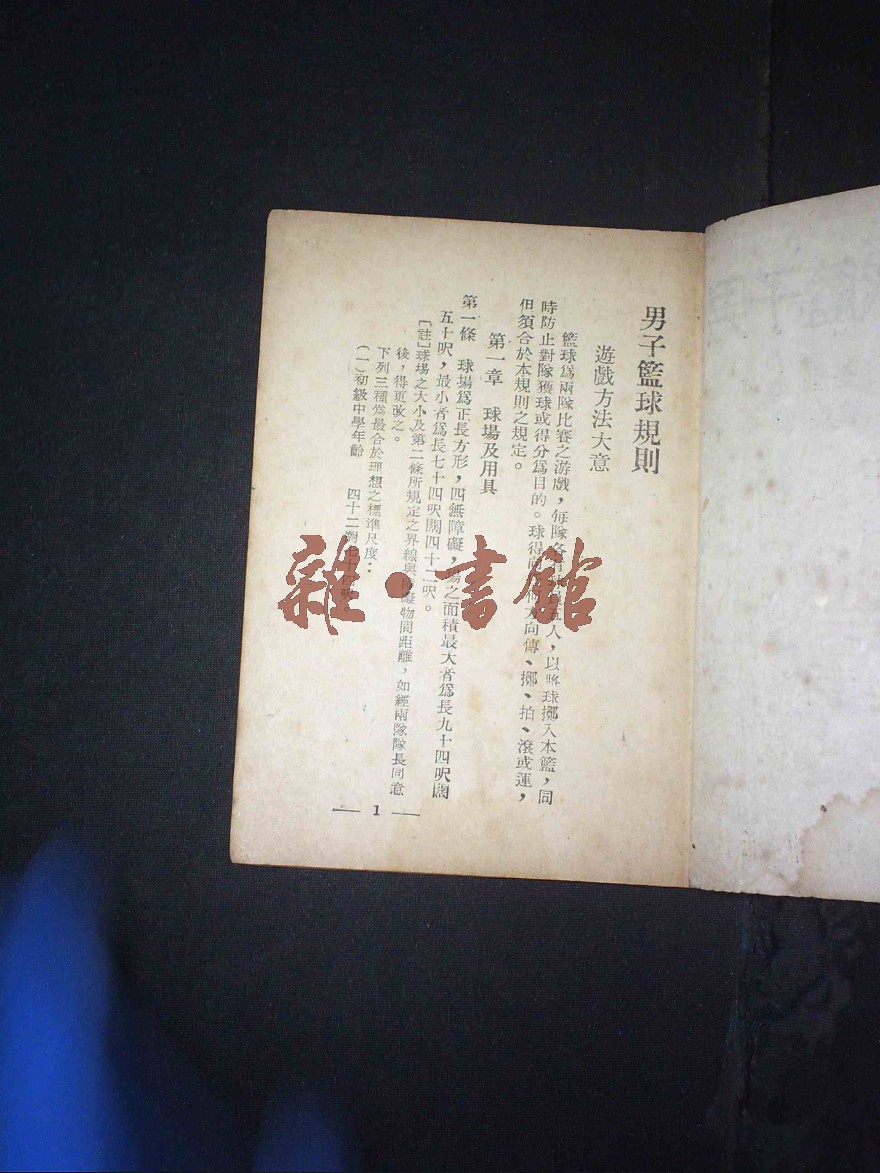 男子籃球規則
遊戲方法大意
籃球爲兩隊比賽之游戲，每隊各有球員五人，以將球擲入本籃，同
時防止對隊獲球或得分爲目的。球得向任何方向傳、擲、拍、滾或運，
但須合於本規則之規定。
第一章 球場及用具
第一條 球場爲正長方形，四無障礙，場之面積最大者爲長九十四呎闊
五十呎，最小者爲長七十四呎闊四十二呎。
〔註〕球場之大小及第二條所規定之界線與障礙物間距離，如經兩隊隊長同意
後，得更改之。
下列三種爲最合於理想之標準尺度：
（一）初級中學年齡 四十二對七十四呎
— 1 —
雜·書館